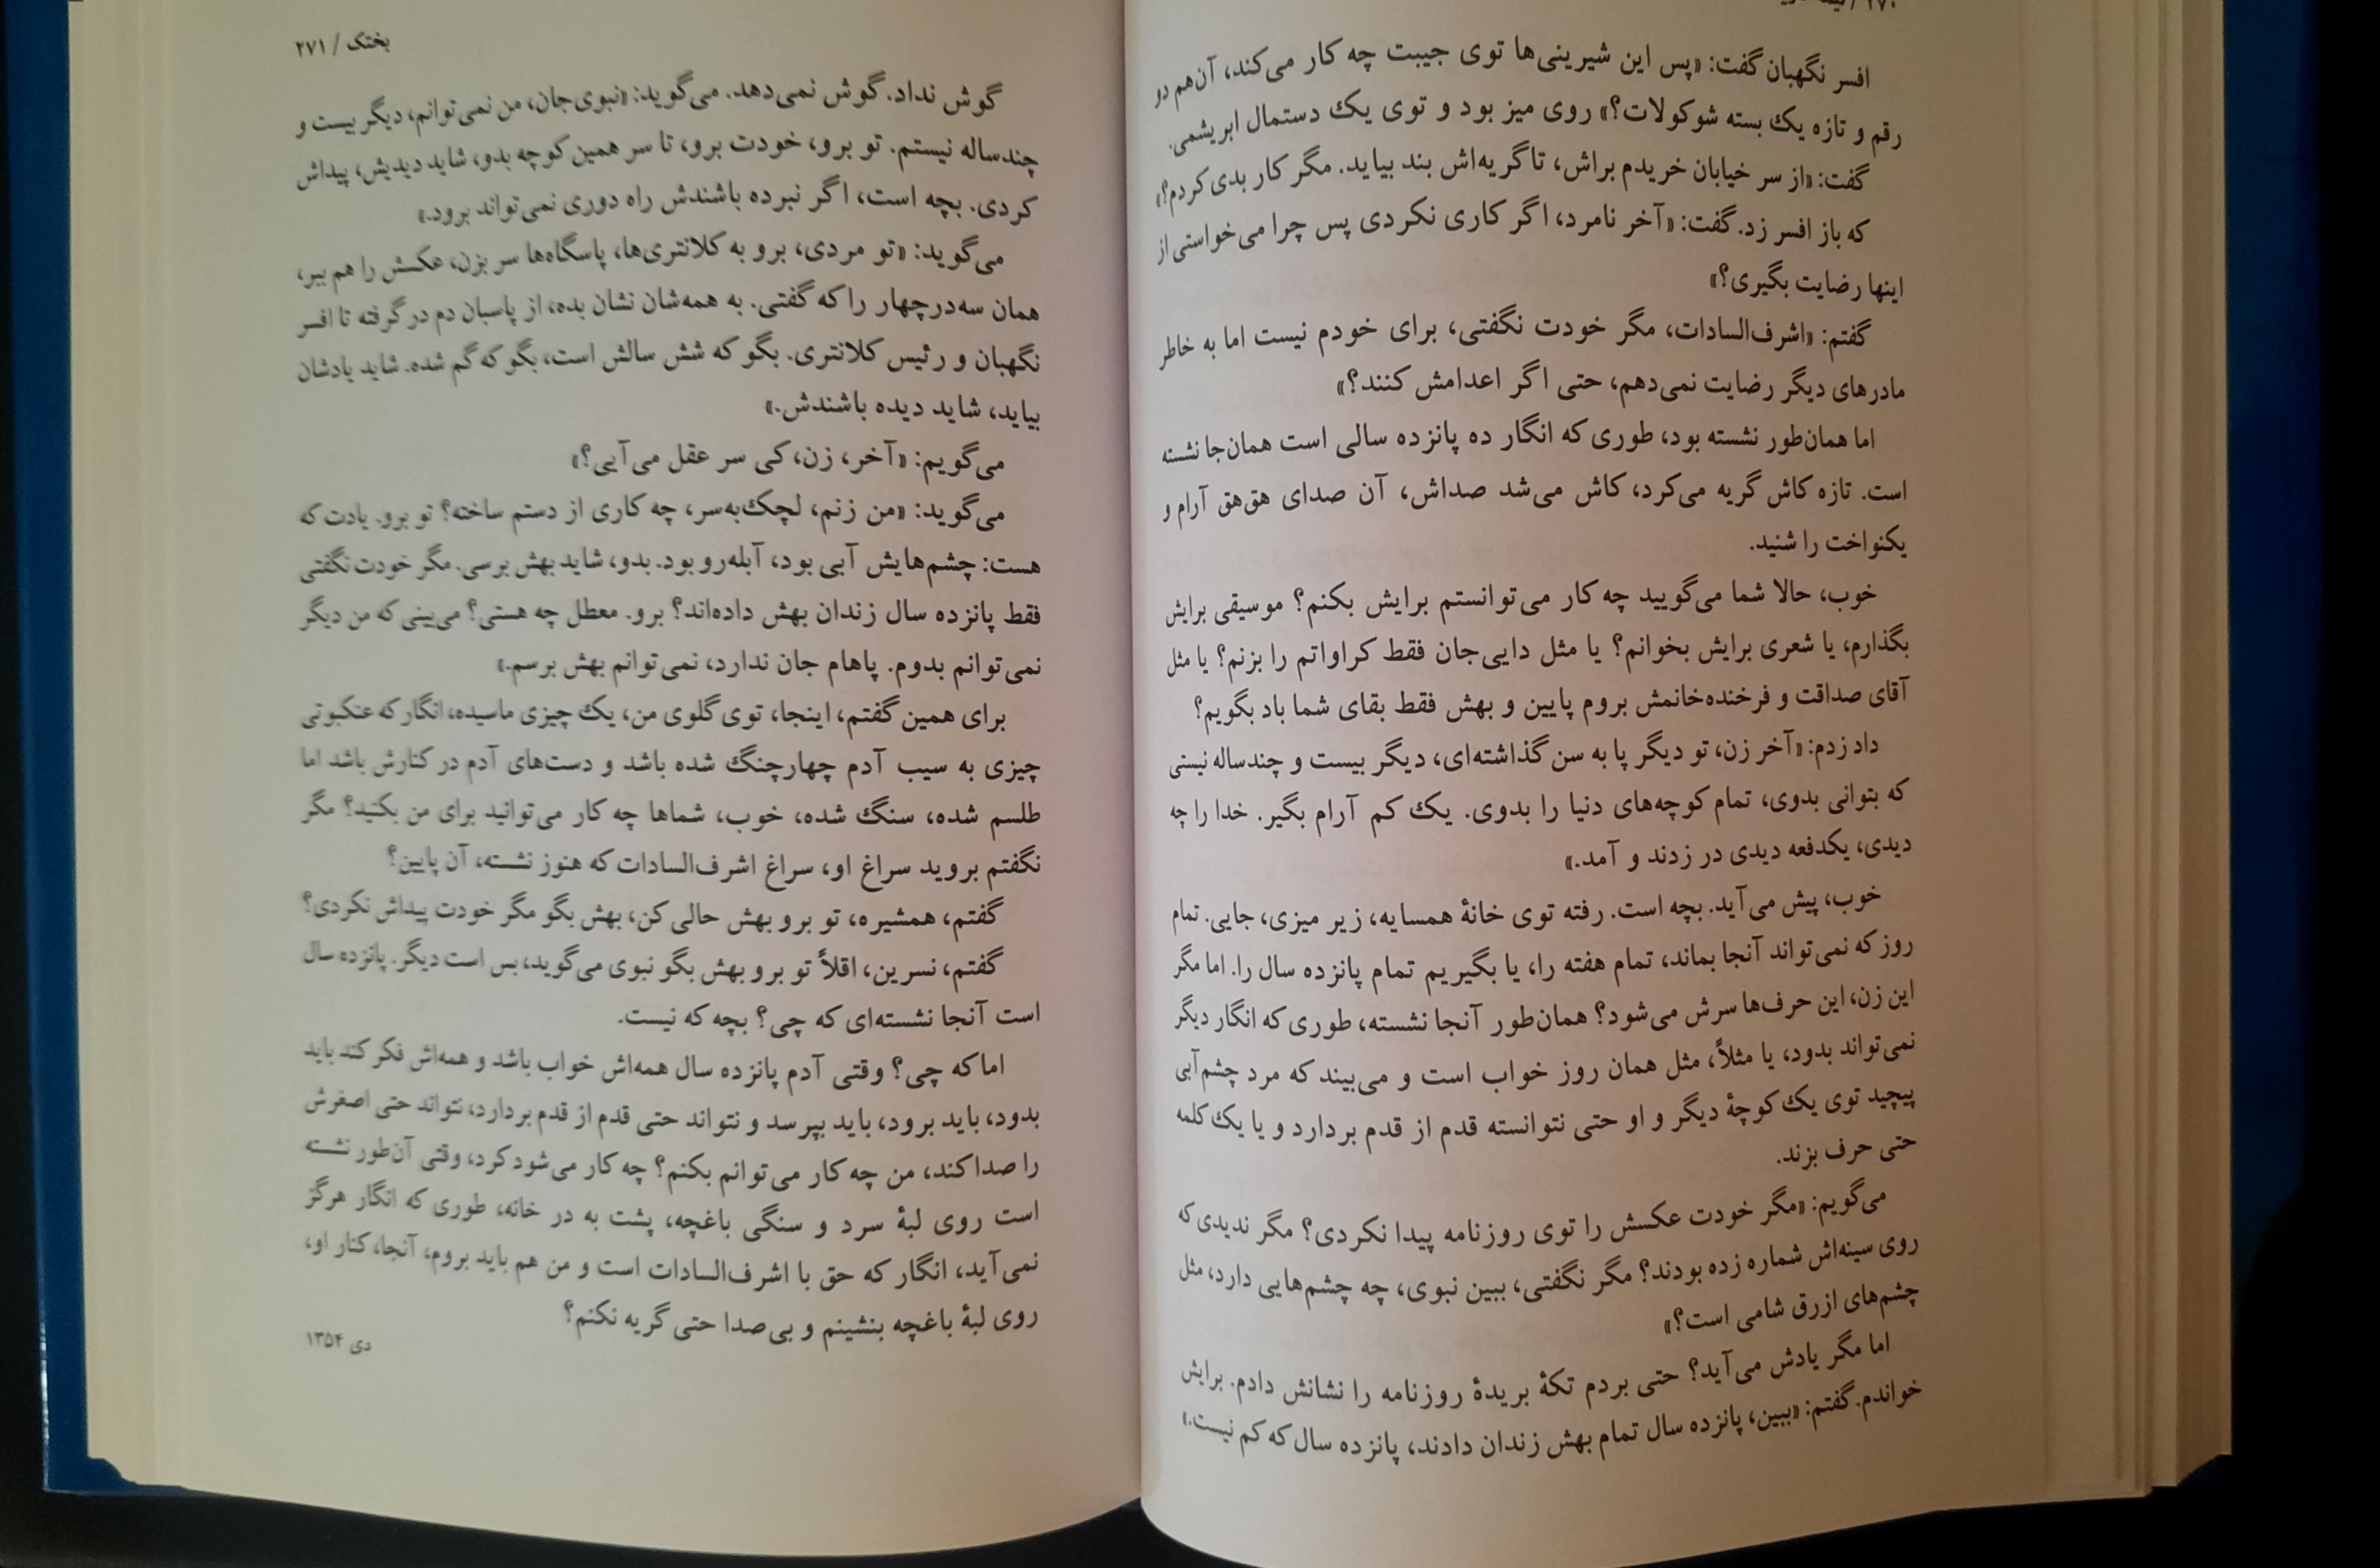 ۲۷۰ /
افسر نگهبان گفت: «پس این شیرینی‌ها توی جیبت چه کار می‌کند، آن‌هم دو
رقم و تازه یک بسته شوکولات؟» روی میز بود و توی یک دستمال ابریشمی.
گفت: «از سر خیابان خریدم براش، تا گریه‌اش بند بیاید. مگر کار بدی کردم؟»
که باز افسر زد. گفت: «آخر نامرد، اگر کاری نکردی پس چرا می‌خواستی از
اینها رضایت بگیری؟»
گفتم: «اشرف‌السادات، مگر خودت نگفتی، برای خودم نیست اما به خاطر
مادرهای دیگر رضایت نمی‌دهم، حتی اگر اعدامش کنند؟»
اما همان‌طور نشسته بود، طوری که انگار ده پانزده سالی است همان‌جا نشسته
است. تازه کاش گریه می‌کرد، کاش می‌شد صداش، آن صدای هق‌هق آرام و
یکنواخت را شنید.
خوب، حالا شما می‌گویید چه کار می‌توانستم برایش بکنم؟ موسیقی برایش
بگذارم، یا شعری برایش بخوانم؟ یا مثل دایی‌جان فقط کراواتم را بزنم؟ یا مثل
آقای صداقت و فرخنده‌خانمش بروم پایین و بهش فقط بقای شما باد بگویم؟
داد زدم: «آخر زن، تو دیگر پا به سن گذاشته‌ای، دیگر بیست و چندساله نیستی
که بتوانی بدوی، تمام کوچه‌های دنیا را بدوی. یک کم آرام بگیر. خدا را چه
دیدی، یکدفعه دیدی در زدند و آمد.»
خوب، پیش می‌آید. بچه است. رفته توی خانهٔ همسایه، زیر میزی، جایی. تمام
روز که نمی‌تواند آنجا بماند، تمام هفته را، یا بگیریم تمام پانزده سال را. اما مگر
این زن، این حرف‌ها سرش می‌شود؟ همان‌طور آنجا نشسته، طوری که انگار دیگر
نمی‌تواند بدود، یا مثلاً، مثل همان روز خواب است و می‌بیند که مرد چشم‌آبی
پیچید توی یک کوچهٔ دیگر و او حتی نتوانسته قدم از قدم بردارد و یا یک کلمه
حتی حرف بزند.
می‌گویم: «مگر خودت عکسش را توی روزنامه پیدا نکردی؟ مگر ندیدی که
روی سینه‌اش شماره زده بودند؟ مگر نگفتی، ببین نبوی، چه چشم‌هایی دارد، مثل
چشم‌های ازرق شامی است؟»
اما مگر یادش می‌آید؟ حتی بردم تکهٔ بریدهٔ روزنامه را نشانش دادم. برایش
خواندم. گفتم: «ببین، پانزده سال تمام بهش زندان دادند، پانزده سال که کم نیست.»
بختک / ۲۷۱
گوش نداد. گوش نمی‌دهد. می‌گوید: «نبوی‌جان، من نمی‌توانم، دیگر بیست و
چندساله نیستم. تو برو، خودت برو، تا سر همین کوچه بدو، شاید دیدیش، پیداش
کردی. بچه است، اگر نبرده باشندش راه دوری نمی‌تواند برود.»
می‌گوید: «تو مردی، برو به کلانتری‌ها، پاسگاه‌ها سر بزن، عکسش را هم ببر،
همان سه‌درچهار را که گفتی. به همه‌شان نشان بده، از پاسبان دم در گرفته تا افسر
نگهبان و رئیس کلانتری. بگو که شش سالش است، بگو که گم شده. شاید یادشان
بیاید، شاید دیده باشندش.»
می‌گویم: «آخر، زن، کی سر عقل می‌آیی؟»
می‌گوید: «من زنم، لچک‌به‌سر، چه کاری از دستم ساخته؟ تو برو. یادت که
هست: چشم‌هایش آبی بود، آبله‌رو بود. بدو، شاید بهش برسی. مگر خودت نگفتی
فقط پانزده سال زندان بهش داده‌اند؟ برو. معطل چه هستی؟ می‌بینی که من دیگر
نمی‌توانم بدوم. پاهام جان ندارد، نمی‌توانم بهش برسم.»
برای همین گفتم، اینجا، توی گلوی من، یک چیزی ماسیده، انگار که عنکبوتی
چیزی به سیب آدم چهارچنگ شده باشد و دست‌های آدم در کنارش باشد اما
طلسم شده، سنگ شده، خوب، شماها چه کار می‌توانید برای من بکنید؟ مگر
نگفتم بروید سراغ او، سراغ اشرف‌السادات که هنوز نشسته، آن پایین؟
گفتم، همشیره، تو برو بهش حالی کن، بهش بگو مگر خودت پیداش نکردی؟
گفتم، نسرین، اقلاً تو برو بهش بگو نبوی می‌گوید، بس است دیگر. پانزده سال
است آنجا نشسته‌ای که چی؟ بچه که نیست.
اما که چی؟ وقتی آدم پانزده سال همه‌اش خواب باشد و همه‌اش فکر کند باید
بدود، باید برود، باید بپرسد و نتواند حتی قدم از قدم بردارد، نتواند حتی اصغرش
را صدا کند، من چه کار می‌توانم بکنم؟ چه کار می‌شود کرد، وقتی آن‌طور نشسته
است روی لبهٔ سرد و سنگی باغچه، پشت به در خانه، طوری که انگار هرگز
نمی‌آید، انگار که حق با اشرف‌السادات است و من هم باید بروم، آنجا، کنار او،
روی لبهٔ باغچه بنشینم و بی‌صدا حتی گریه نکنم؟
دی ۱۳۵۴